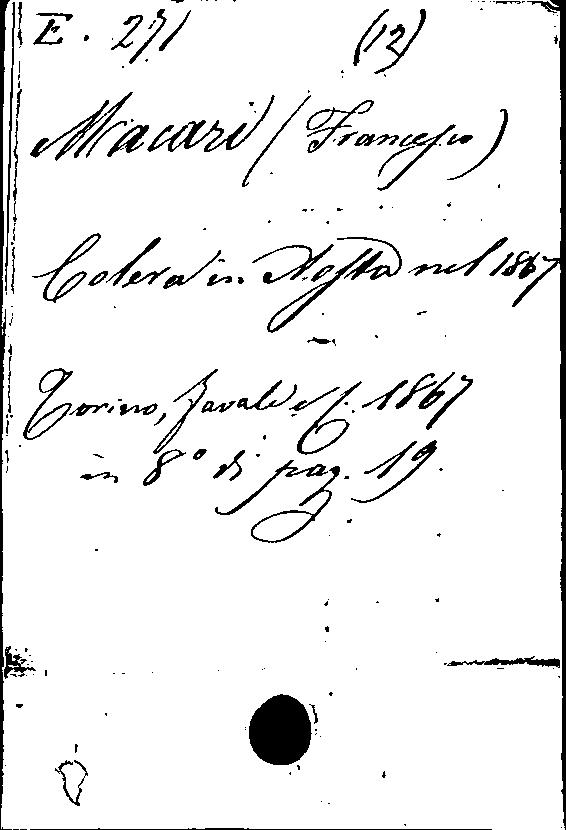 E. 271 (12)
Macari (Francesco)
Colera in Aosta nel 1867
Torino, Favale e C. 1867
in 8° di pag. 19.